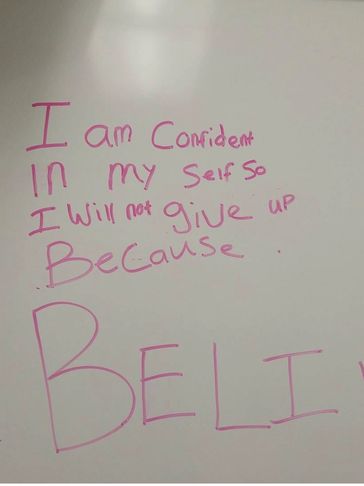 I am Confident
In my Self So
I Will not give up
Because.
BELI